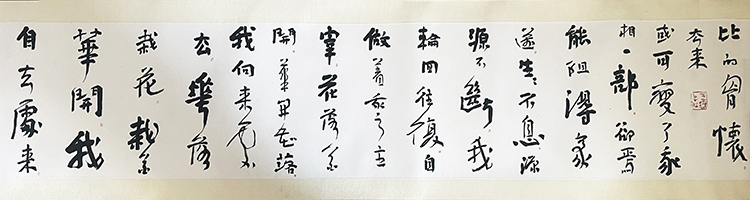 比的胷懷
或可變了我
相一部卻焉
能阻得我
遂生生不息源
源不斷我
輪回往復自
做着我之主
宰花落
開華開花落
我向來
去華落
栽花栽
華開我
自去處來